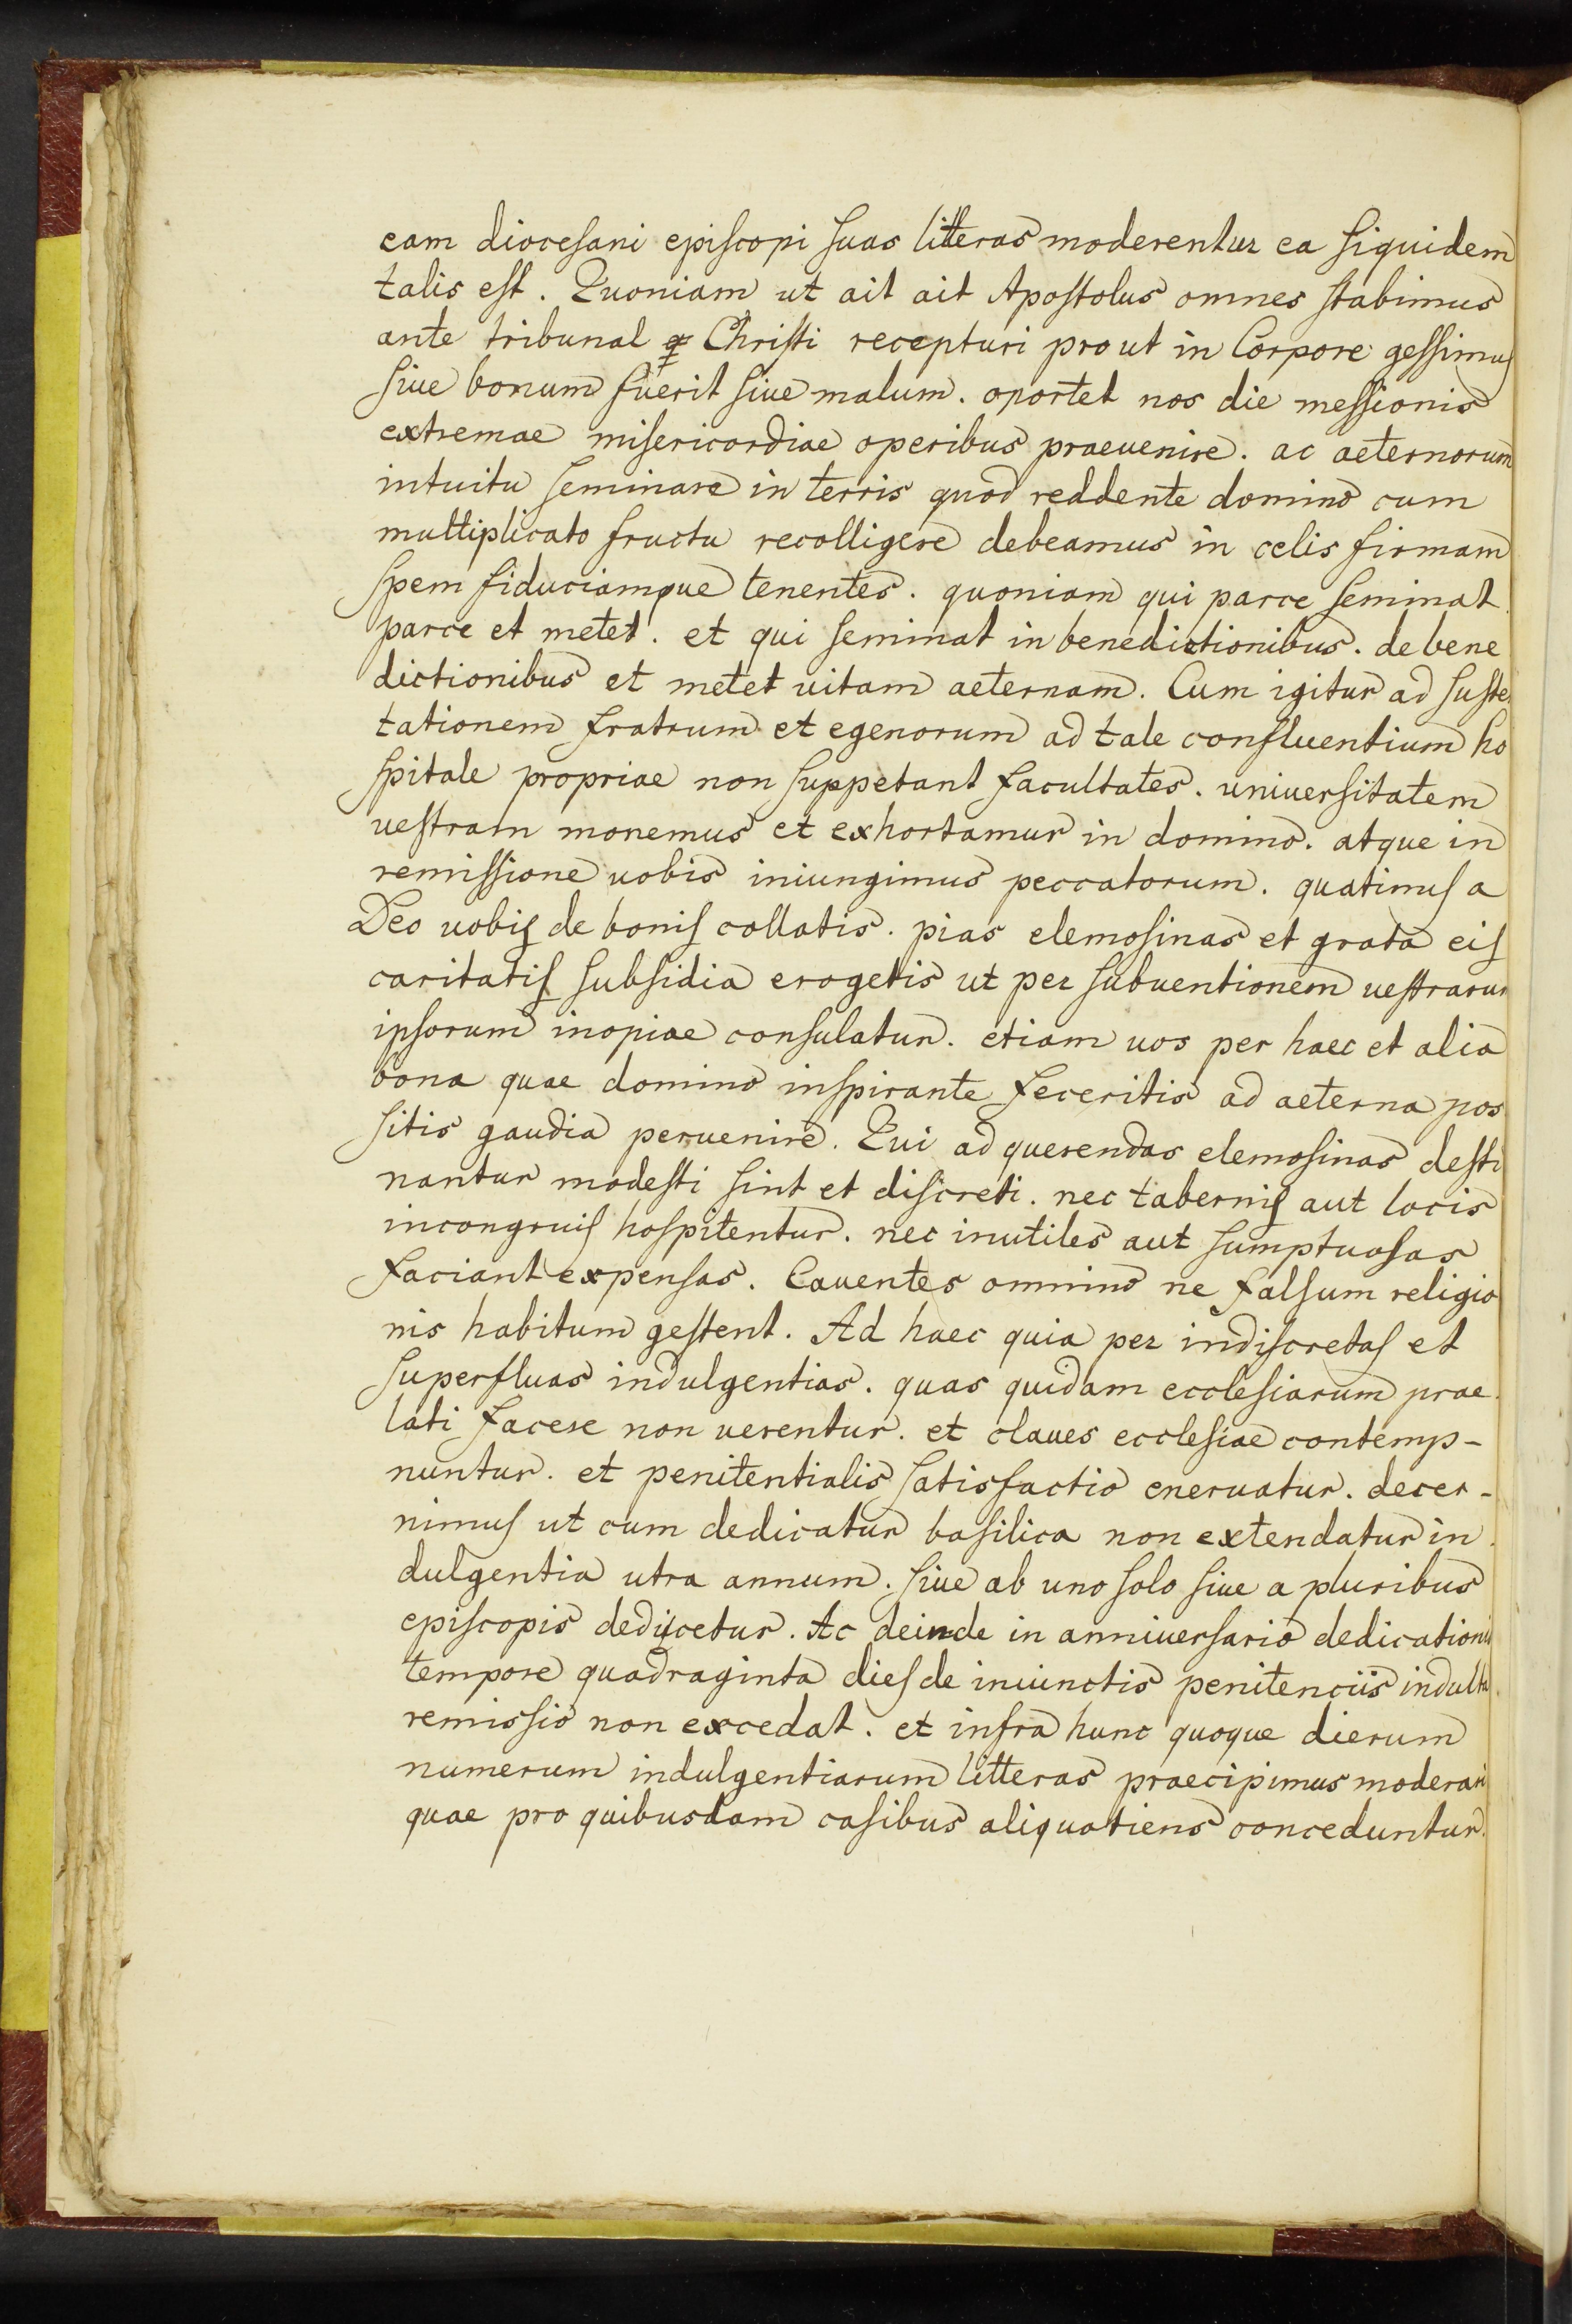 eam diocesani episcopi suas litteras moderentur ea siquidem
talis est. Quoniam ut ait ait Apostolus omnes stabimus
ante tribunal Christi recepturi prout in Corpore gessimus
siue bonum fuerit siue malum. oportet nos die messionis
extremae misericordiae operibus praeuenire. ac aeternorum
intuitu seminare in terris quod reddente domino cum
multiplicato fructu recolligere debeamus in celis firmam
spem fiduciamque tenentes. quoniam qui parce seminat
parce et metet. et qui seminat in benedictionibus. de bene
dictionibus et metet uitam aeternam. Cum igitur ad suste
tationem fratrum et egenorum ad tale confluentium ho
spitale propriae non suppetant facultates. uniuersitatem
uestram monemus et exhortamur in domino. atque in
remissione uobis iniungimus peccatorum. quatinus a
Deo uobis de bonis collatis. pias elemosinas et grata eis
caritatis subsidia erogetis ut per subuentionem uestrarum
ipsorum inopiae consulatur. etiam uos per haec et alia
bona quae domino inspirante feceritis ad aeterna pos
sitis gaudia peruenire. Qui ad querendas elemosinas desti
nantur modesti sint et discreti. nec tabernis aut locis
incongruis hospitentur. nec inutiles aut sumptuosas
faciant expensas. Cauentes omnino ne falsum religio
nis habitum gestent. Ad haec quia per indiscretas et
superfluas indulgentias. quas quidam ecclesiarum prae
lati facere non uerentur. et claues ecclesiae contemp-
nuntur. et penitentialis satisfactio eneruatur. decer-
nimus ut cum dedicatur basilica non extendatur in
dulgentia utra annum. siue ab uno solo siue a pluribus
episcopis dedicetur. Ac deinde in anniuersario dedicationis
tempore quadraginta dies de iniunctis penitenciis indulta
remissio non excedat. et infra hunc quoque dierum
numerum indulgentiarum litteras praecipimus moderari
quae pro quibusdam casibus aliquotiens conceduntur.